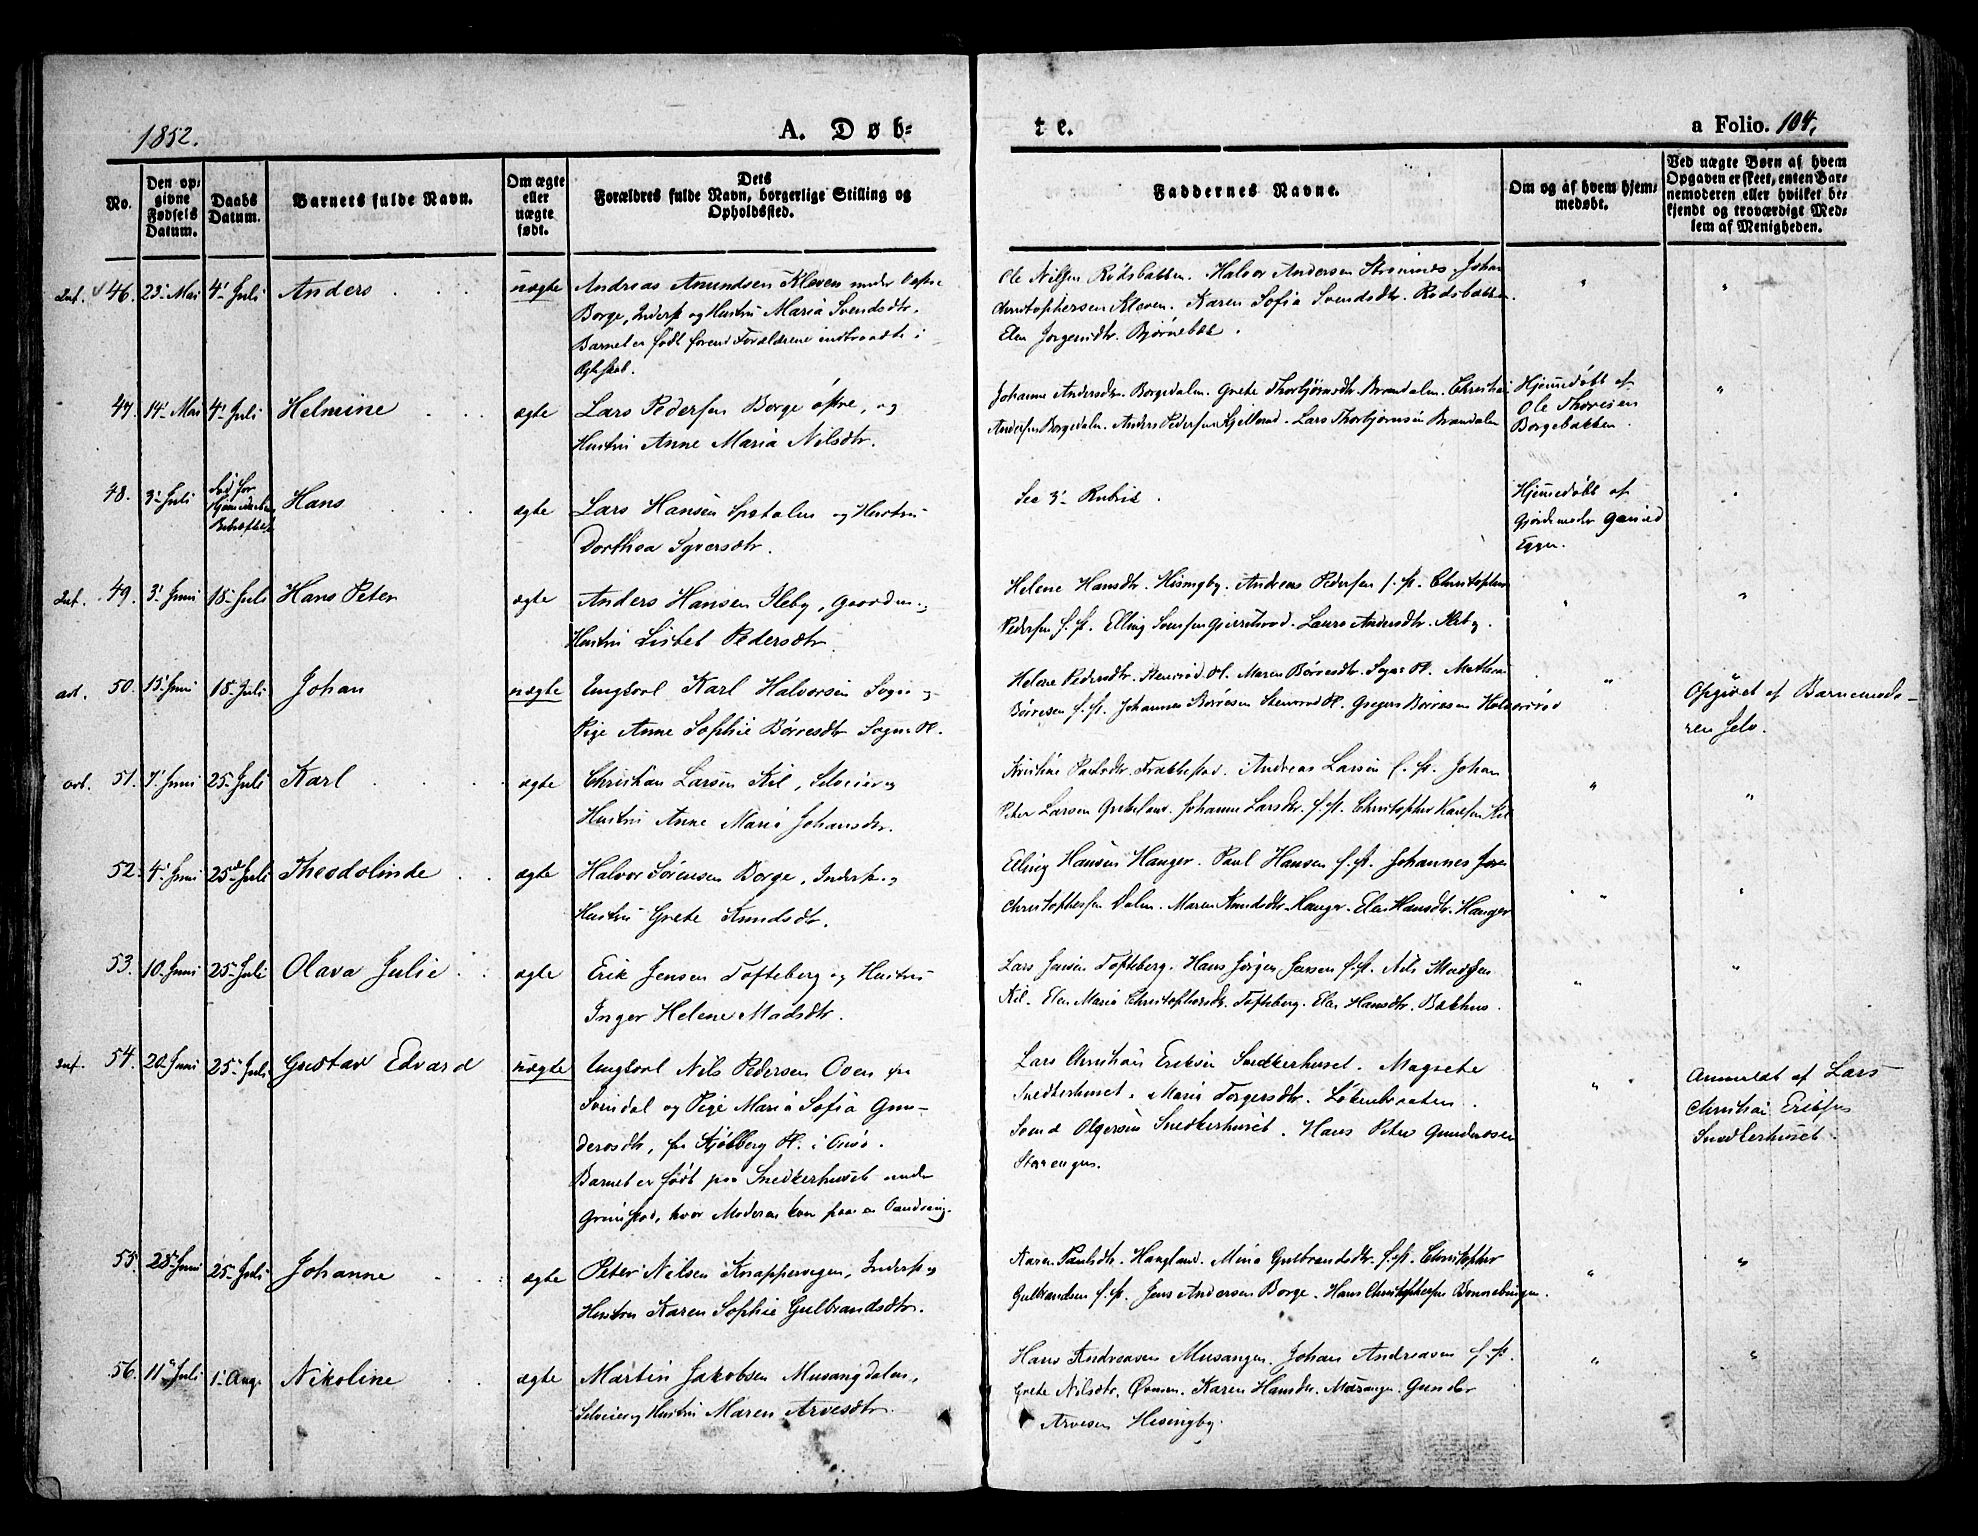 1852.
A. Døb-
te.
a Folio. 104.
No.
Den op-
givne
Fødsels
Datum.
Daabs
Datum.
Barnets fulde Navn.
Om ægte
eller
uægte
født.
Dets
Forældres fulde Navn, borgerlige Stilling og
Opholdssted.
Faddernes Navne.
Om og af hvem hjem-
medøbt.
Ved uægte Børn af hvem
Opgaven er skeet, enten Bar-
nemoderen eller hvilket be-
kjendt og troværdigt Med-
lem af Menigheden.
46. 23' Mai 4' Juli Anders uægte Andreas Amundsen Kleven under
Borge, Inderst og Hustru Maria Svendsdtr.
Barnet er født forend Forældrene indtraadte i
Ægteskab.
Ole Nilsen Rødsbakken. Halvor Andersen Strømnes. Johan
Christophersen Kleven. Karen Sofia Svendsdtr. Rødsbakken
Elen Jørgensdtr. Bjørnebek.
"
"
47. 14' Mai 4' Juli Helmine ægte Lars Pedersen Borge øfre, og
Hustru Anne Maria Nilsdtr.
Johanne Andersdtr. Borgedalen. Grete Thorbjørnsdtr. Brændalen. Christian
Andersen Borgedalen. Anders Pedersen Kjellerød. Lars Thorbjørnsen Brændalen
Hjemmedøbt af
Ole Thoresen
Borgebakken.
"
48. 3' Juli Hans ægte Lars Hansen Spetalen og Hustru
Dorthea Syversdtr.
See 3' Rubrik.
Hjemmedøbt af
Gjordemoder
"
49. 3' Juni 18' Juli Hans Peter ægte Anders Hansen Ileby, Gaardm. og
Hustru Lisbet Pedersdtr.
Helene Hansdtr. Hisingby. Andreas Pedersen f. st. Christopher
Pedersen f. st. Elling Svensen Laura Andersdtr.
"
"
50. 15' Juni 18' Juli Johan uægte Ungkarl Karl Halvorsen og
Pige Anne Sophie Børresdtr.
Helene Pedersdtr. Maren Børresdtr.
Børresen f. st. Johannes Børresen Gregers Børresen
"
Opgivet af Barnemode-
ren selv.
51. 7' Juni 25' Juli Karl ægte Christian Larsen Kil, Selveier og
Hustru Anne Maria Johansdtr.
Kristine Paulsdtr. Andreas Larsen f. st. Johan
Peter Larsen Johanne Larsdtr. f. st. Christopher Karlsen Kil
"
"
52. 4' Juni 25' Juli Theodolinde ægte Halvor Sørensen Borge, Inderst og
Hustru Grete Knudsdtr.
Elling Hansen Hanger. Paul Hansen f. st. Johannes
Christophersen Dalen. Maren Knudsdtr. Hanger. Elen Hansdtr. Hanger
"
"
53. 10' Juni 25' Juli Olava Julie ægte Erik Jensen Tofteberg og Hustru
Inger Helene Madsdtr.
Lars Jensen Tofteberg. Hans Jørgen Jensen f. st. Nils Madsen
Kil. Elen Maria Christophersdtr. Tofteberg. Elen Hansdtr. Bakhus.
"
"
54. 20' Juni 25' Juli Gustav Edvard uægte Ungkarl Nils Pedersen Oven fra
Svindal og Pige Maria Sofia Gun-
dersdtr, fra Kjølberg Pl. i Onsø.
Barnet er født paa Snedkerhuset under
Grimstad, hvor Moderen kom paa en Vandring.
Lars Christian Eriksen Snedkerhuset. Magrete
Snedkerhuset. Maria Torgersdtr. Løkenbraaten.
Svend Olgersen Snedkerhuset. Hans Peter Gundersen
Starengen.
"
Anmeldt af Lars
Christian Eriksen
Snedkerhuset.
55. 28' Juni 25' Juli Johanne ægte Peter Nilsen Knappervegen, Inderst og
Hustru Karen Sophie Gulbrandsdtr.
Karen Paulsdtr. Haugland. Mina Gulbrandsdtr. f. st. Christopher
Gulbrandsen f. st. Jens Andersen Borge. Hans Christophersen
"
"
56. 11' Juli 1' Aug. Nikoline ægte Martin Jakobsen Musangdalen,
Selveier og Hustru Maren Arvesdtr.
Hans Andreasen Musangen. Johan Andreasen f. st.
Grete Nilsdtr. Karen Hansdtr. Musangen. Gunder
Arvesen Hisingby.
"
"